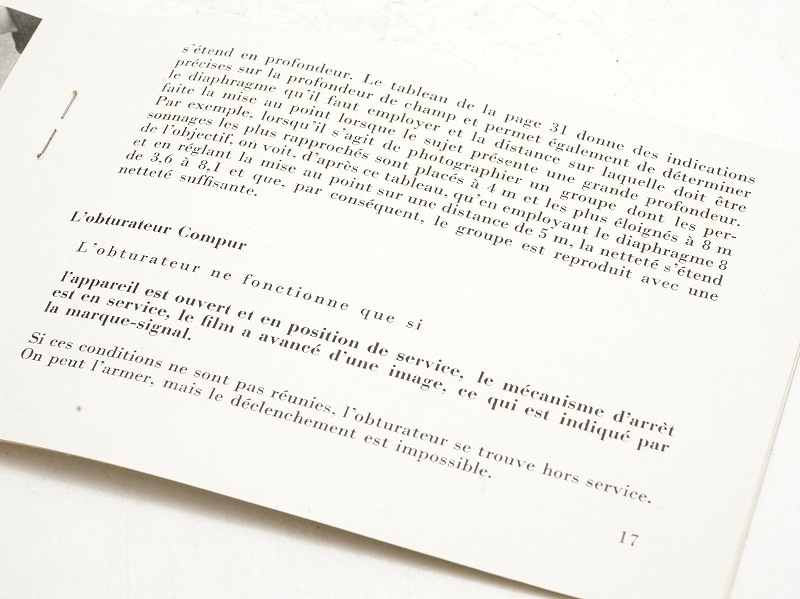 s'étend en profondeur. Le tableau de la page 31 donne des indications
précises sur la profondeur de champ et permet également de déterminer
le diaphragme qu'il faut employer et la distance sur laquelle doit être
faite la mise au point lorsque le sujet présente une grande profondeur.
Par exemple, lorsqu'il s'agit de photographier un groupe dont les per-
sonnages les plus rapprochés sont placés à 4 m et les plus éloignés à 8 m
de l'objectif, on voit, d'après ce tableau, qu'en employant le diaphragme 8
et en réglant la mise au point sur une distance de 5 m, la netteté s'étend
de 3,6 à 8,1 et que, par conséquent, le groupe est reproduit avec une
netteté suffisante.
L'obturateur Compur
L'obturateur ne fonctionne que si
l'appareil est ouvert et en position de service, le mécanisme d'arrêt
est en service, le film a avancé d'une image, ce qui est indiqué par
la marque-signal.
Si ces conditions ne sont pas réunies, l'obturateur se trouve hors service.
On peut l'armer, mais le déclenchement est impossible.
17